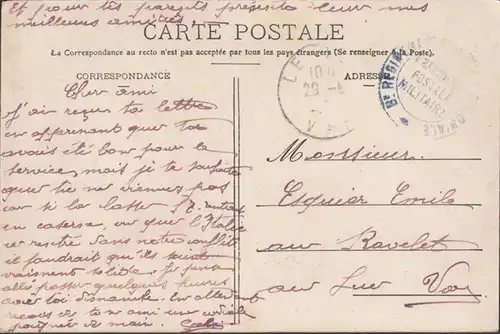 Et pour tes parents présente leur mes
meilleurs amitiés
CARTE POSTALE
La Correspondance au recto n'est pas acceptée par tous les pays étrangers (Se renseigner à la Poste).
CORRESPONDANCE
ADRESSE
8e REGIMENT
POSTALE
MILITAIRE
Cher ami
J'ai reçu ta lettre
en apprenant que tu
avais été bon pour le
service, mais je te souhaite
que tu ne viennes pas
car si la classe
en caserne, vu que l'Italie
est resté dans notre conflit
il faudrait qu'ils soient
vraiment solide. Je pense
allé passer quelques heures
avec toi dimanche. En attendant
reçois de ton ami une cordiale
poignée de main.
Monsieur
Esquier Emile
au Ravelet
au Luc Var